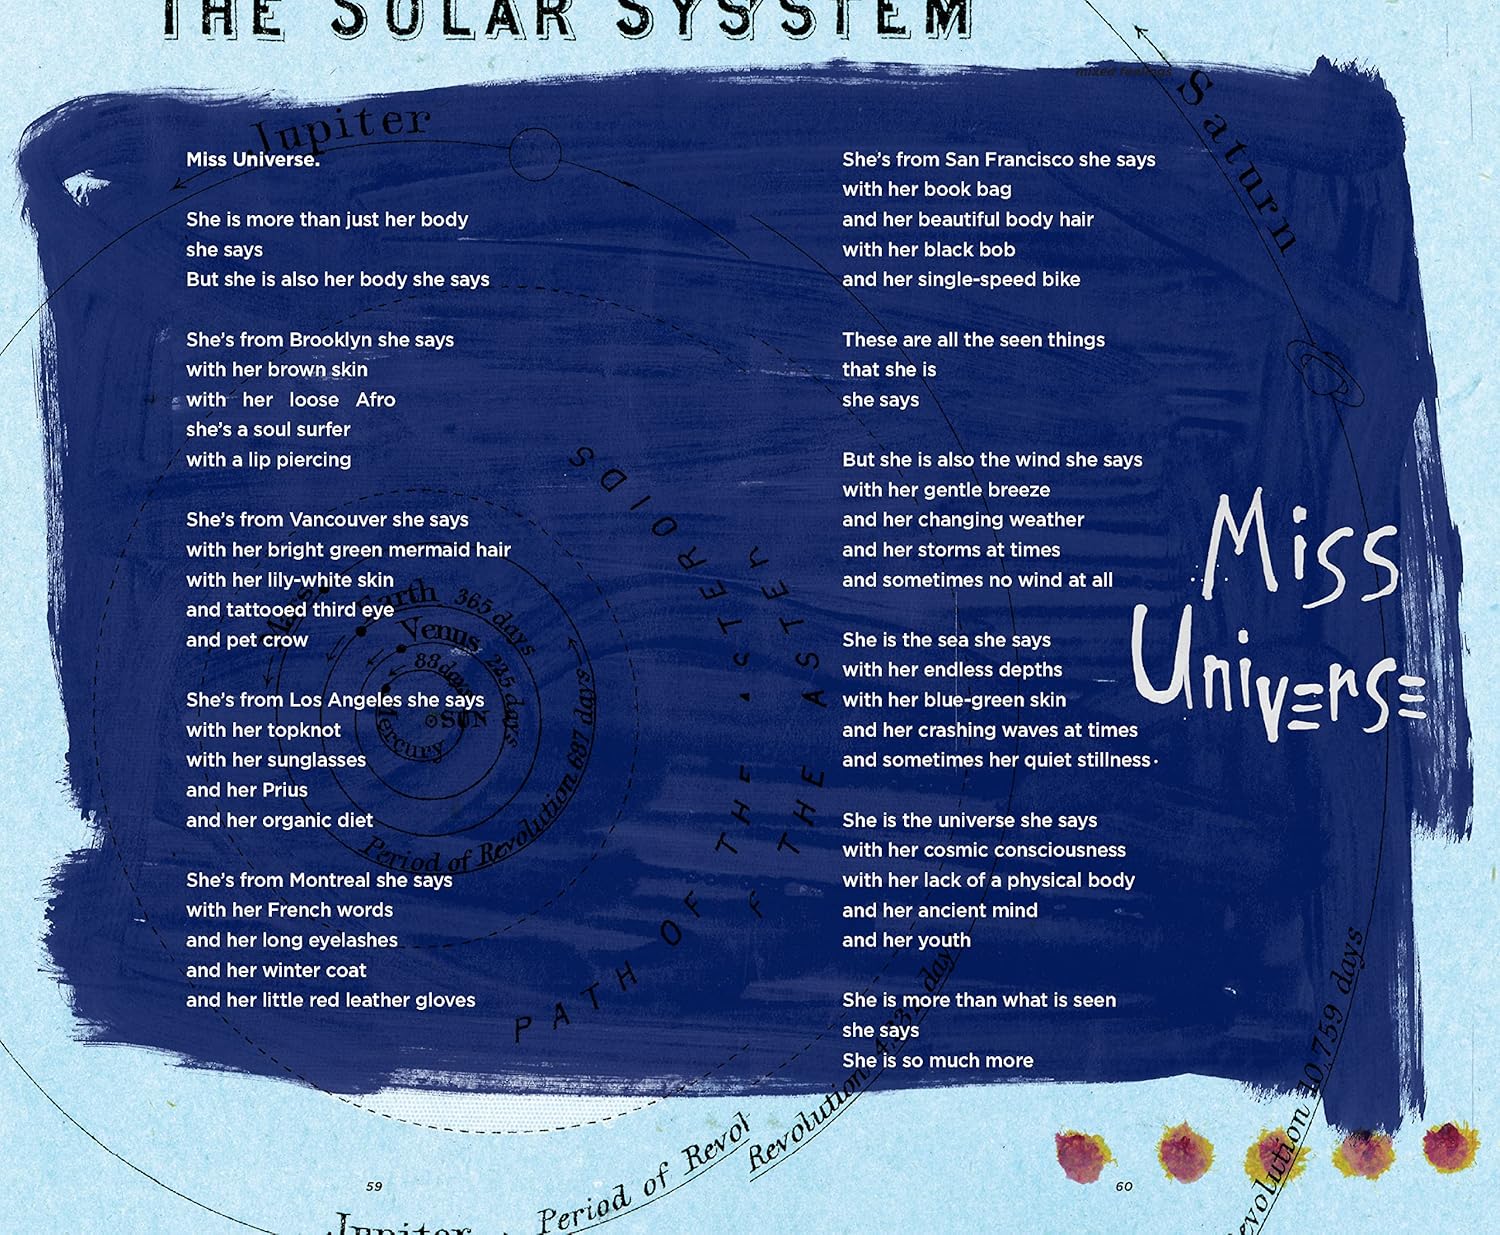 THE SOLAR SYSSTEM
mixed feelings
Jupiter
Saturn
Miss Universe.
She is more than just her body
she says
But she is also her body she says
She's from Brooklyn she says
with her brown skin
with her loose Afro
she's a soul surfer
with a lip piercing
She's from Vancouver she says
with her bright green mermaid hair
with her lily-white skin
and tattooed third eye
and pet crow
She's from Los Angeles she says
with her topknot
with her sunglasses
and her Prius
and her organic diet
She's from Montreal she says
with her French words
and her long eyelashes
and her winter coat
and her little red leather gloves
She's from San Francisco she says
with her book bag
and her beautiful body hair
with her black bob
and her single-speed bike
These are all the seen things
that she is
she says
But she is also the wind she says
with her gentle breeze
and her changing weather
and her storms at times
and sometimes no wind at all
She is the sea she says
with her endless depths
with her blue-green skin
and her crashing waves at times
and sometimes her quiet stillness
She is the universe she says
with her cosmic consciousness
with her lack of a physical body
and her ancient mind
and her youth
She is more than what is seen
she says
She is so much more
Miss
Universe
Mars
Earth 365 days
Venus 225 days
83 days
Mercury
SUN
Period of Revolution 687 days
PATH OF THE ASTEROIDS
F THE ASTER
Period of Revol
Revolution 4,332 days
evolution 10,759 days
Jupiter
59
60